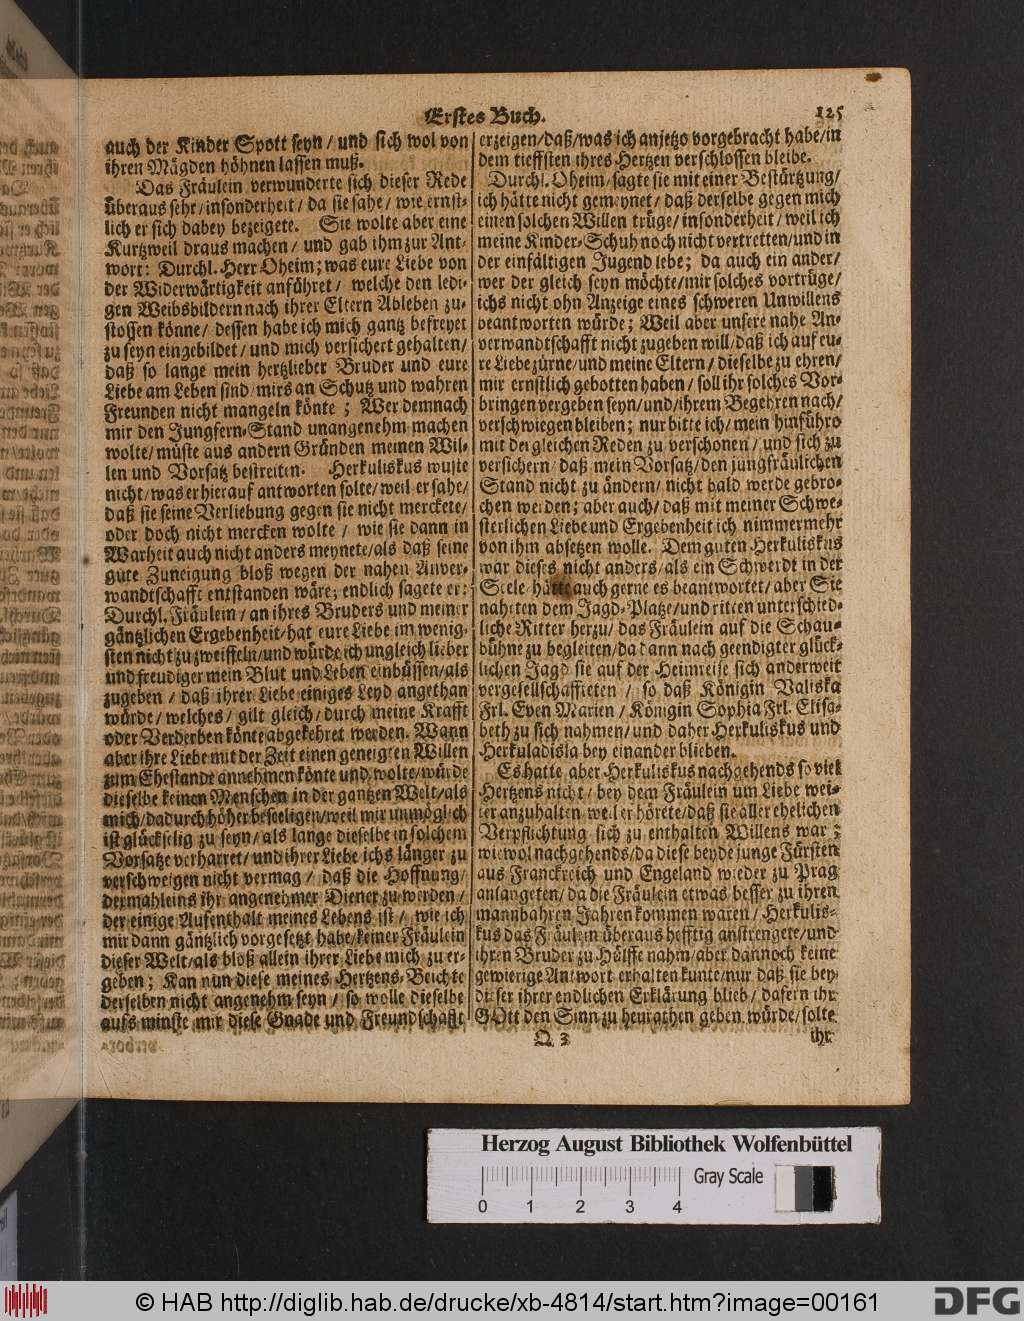 Erstes Buch. 125
auch der Kinder Spott seyn / und sich wol von
ihren Mägden höhnen lassen muß.
Das Fräulein verwunderte sich dieser Rede
überaus sehr / insonderheit / da sie sahe / wie ernst-
lich er sich dabey bezeigete. Sie wolte aber eine
Kurtzweil draus machen / und gab ihm zur Ant-
wort: Durchl. Herr Oheim; was eure Liebe von
der Widerwärtigkeit anführet / welche den ledi-
gen Weibsbildern nach ihrer Eltern Ableben zu-
stossen könne / dessen habe ich mich gantz befreyet
zu seyn eingebildet / und mich versichert gehalten /
daß so lange mein hertzlieber Bruder und eure
Liebe am Leben sind / mirs an Schutz und wahren
Freunden nicht mangeln könte ; Wer demnach
mir den Jungfern-Stand unangenehm machen
wolte / müste aus andern Gründen meinen Wil-
len und Vorsatz bestreiten. Herkuliskus wuste
nicht / was er hierauf antworten solte / weil er sahe /
daß sie seine Verliebung gegen sie nicht merckete /
oder doch nicht mercken wolte / wie sie dann in
Warheit auch nicht anders meynete / als daß seine
gute Zuneigung bloß wegen der nahen Anver-
wandtschafft entstanden wäre; endlich sagete er:
Durchl. Fräulein / an ihres Bruders und meiner
gäntzlichen Ergebenheit / hat eure Liebe im wenig-
sten nicht zu zweiffeln / und würde ich ungleich lieber
und freudiger mein Blut und Leben einbüssen / als
zugeben / daß ihrer Liebe einiges Leyd angethan
würde / welches / gilt gleich / durch meine Krafft
oder Verderben könte abgekehret werden. Wann
aber ihre Liebe mit der Zeit einen geneigten Willen
zum Ehestande annehmen könte und wolte / würde
dieselbe keinen Menschen in der gantzen Welt / als
mich / dadurch höher beseeligen / weil mir unmöglich
ist glückselig zu seyn / als lange dieselbe in solchem
Vorsatze verharret / und ihrer Liebe ichs länger zu
verschweigen nicht vermag / daß die Hoffnung /
dermahleins ihr angenehmer Diener zu werden /
der einige Aufenthalt meines Lebens ist / wie ich
mir dann gäntzlich vorgesetzt habe / keiner Fräulein
dieser Welt / als bloß allein ihrer Liebe mich zu er-
geben ; Kan nun diese meines Hertzens-Beichte
derselben nicht angenehm seyn / so wolle dieselbe
aufs minste mir diese Gnade und Freundschafft
erzeigen / daß / was ich anjetzo vorgebracht habe / in
dem tieffsten ihres Hertzen verschlossen bleibe.
Durchl. Oheim / sagte sie mit einer Bestürtzung /
ich hätte nicht gemeynet / daß derselbe gegen mich
einen solchen Willen trüge / insonderheit / weil ich
meine Kinder-Schuh noch nicht vertretten / und in
der einfältigen Jugend lebe; da auch ein ander /
wer der gleich seyn möchte / mir solches vortrüge /
ichs nicht ohn Anzeige eines schweren Unwillens
beantworten würde ; Weil aber unsere nahe An-
verwandtschafft nicht zugeben will / daß ich auf eu-
re Liebe zürne / und meine Eltern / dieselbe zu ehren /
mir ernstlich gebotten haben / soll ihr solches Vor-
bringen vergeben seyn / und / ihrem Begehren nach /
verschwiegen bleiben ; nur bitte ich / mein hinführo
mit dergleichen Reden zu verschonen / und sich zu
versichern / daß mein Vorsatz / den jungfräulichen
Stand nicht zu ändern / nicht bald werde gebro-
chen werden ; aber auch / daß mit meiner Schwe-
sterlichen Liebe und Ergebenheit ich nimmermehr
von ihm absetzen wolle. Dem guten Herkuliskus
war dieses nicht anders / als ein Schwerdt in der
Seele / hätte auch gerne es beantwortet / aber Sie
naheten dem Jagd-Platze / und ritten unterschied-
liche Ritter herzu / das Fräulein auf die Schau-
bühne zu begleiten / da dann nach geendigter glück-
lichen Jagd sie auf der Heimreise sich anderweit
vergesellschaffteten / so daß Königin Valiska
Frl. Even Marien / Königin Sophia Frl. Elisa-
beth zu sich nahmen / und daher Herkuliskus und
Herkuladisla bey einander blieben.
Es hatte aber Herkuliskus nachgehends so viel
Hertzens nicht / bey dem Fräulein um Liebe wei-
ter anzuhalten / weil er hörete / daß sie aller ehelichen
Verpflichtung sich zu enthalten Willens war ;
wiewol nachgehends / da diese beyde junge Fürsten
aus Franckreich und Engeland wieder zu Prag
anlangeten / da die Fräulein etwas besser zu ihren
mannbahren Jahren kommen waren / Herkulis-
kus das Fräulein überaus hefftig anstrengete / und
ihren Bruder zu Hülffe nahm / aber dannoch keine
gewierige Antwort erhalten kunte / nur daß sie bey
dieser ihrer endlichen Erklärung blieb / dafern ihr
GOtt den Sinn zu heurathen geben würde / solte
Q 3 ihr
Herzog August Bibliothek Wolfenbüttel
Gray Scale
0 1 2 3 4
© HAB http://diglib.hab.de/drucke/xb-4814/start.htm?image=00161
DFG